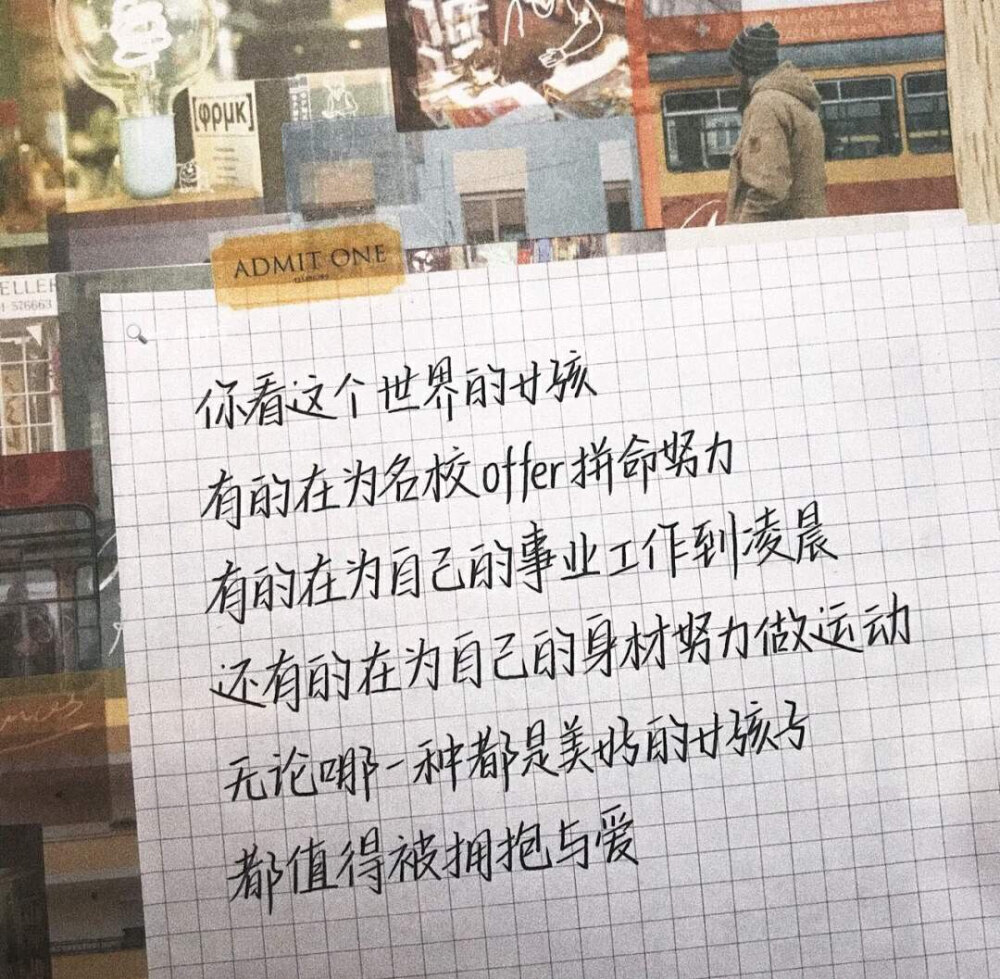 [φρμκ]
ADMIT ONE
ELLER
526663
你看这个世界的女孩
有的在为名校offer拼命努力
有的在为自己的事业工作到凌晨
还有的在为自己的身材努力做运动
无论哪一种都是美好的女孩子
都值得被拥抱与爱